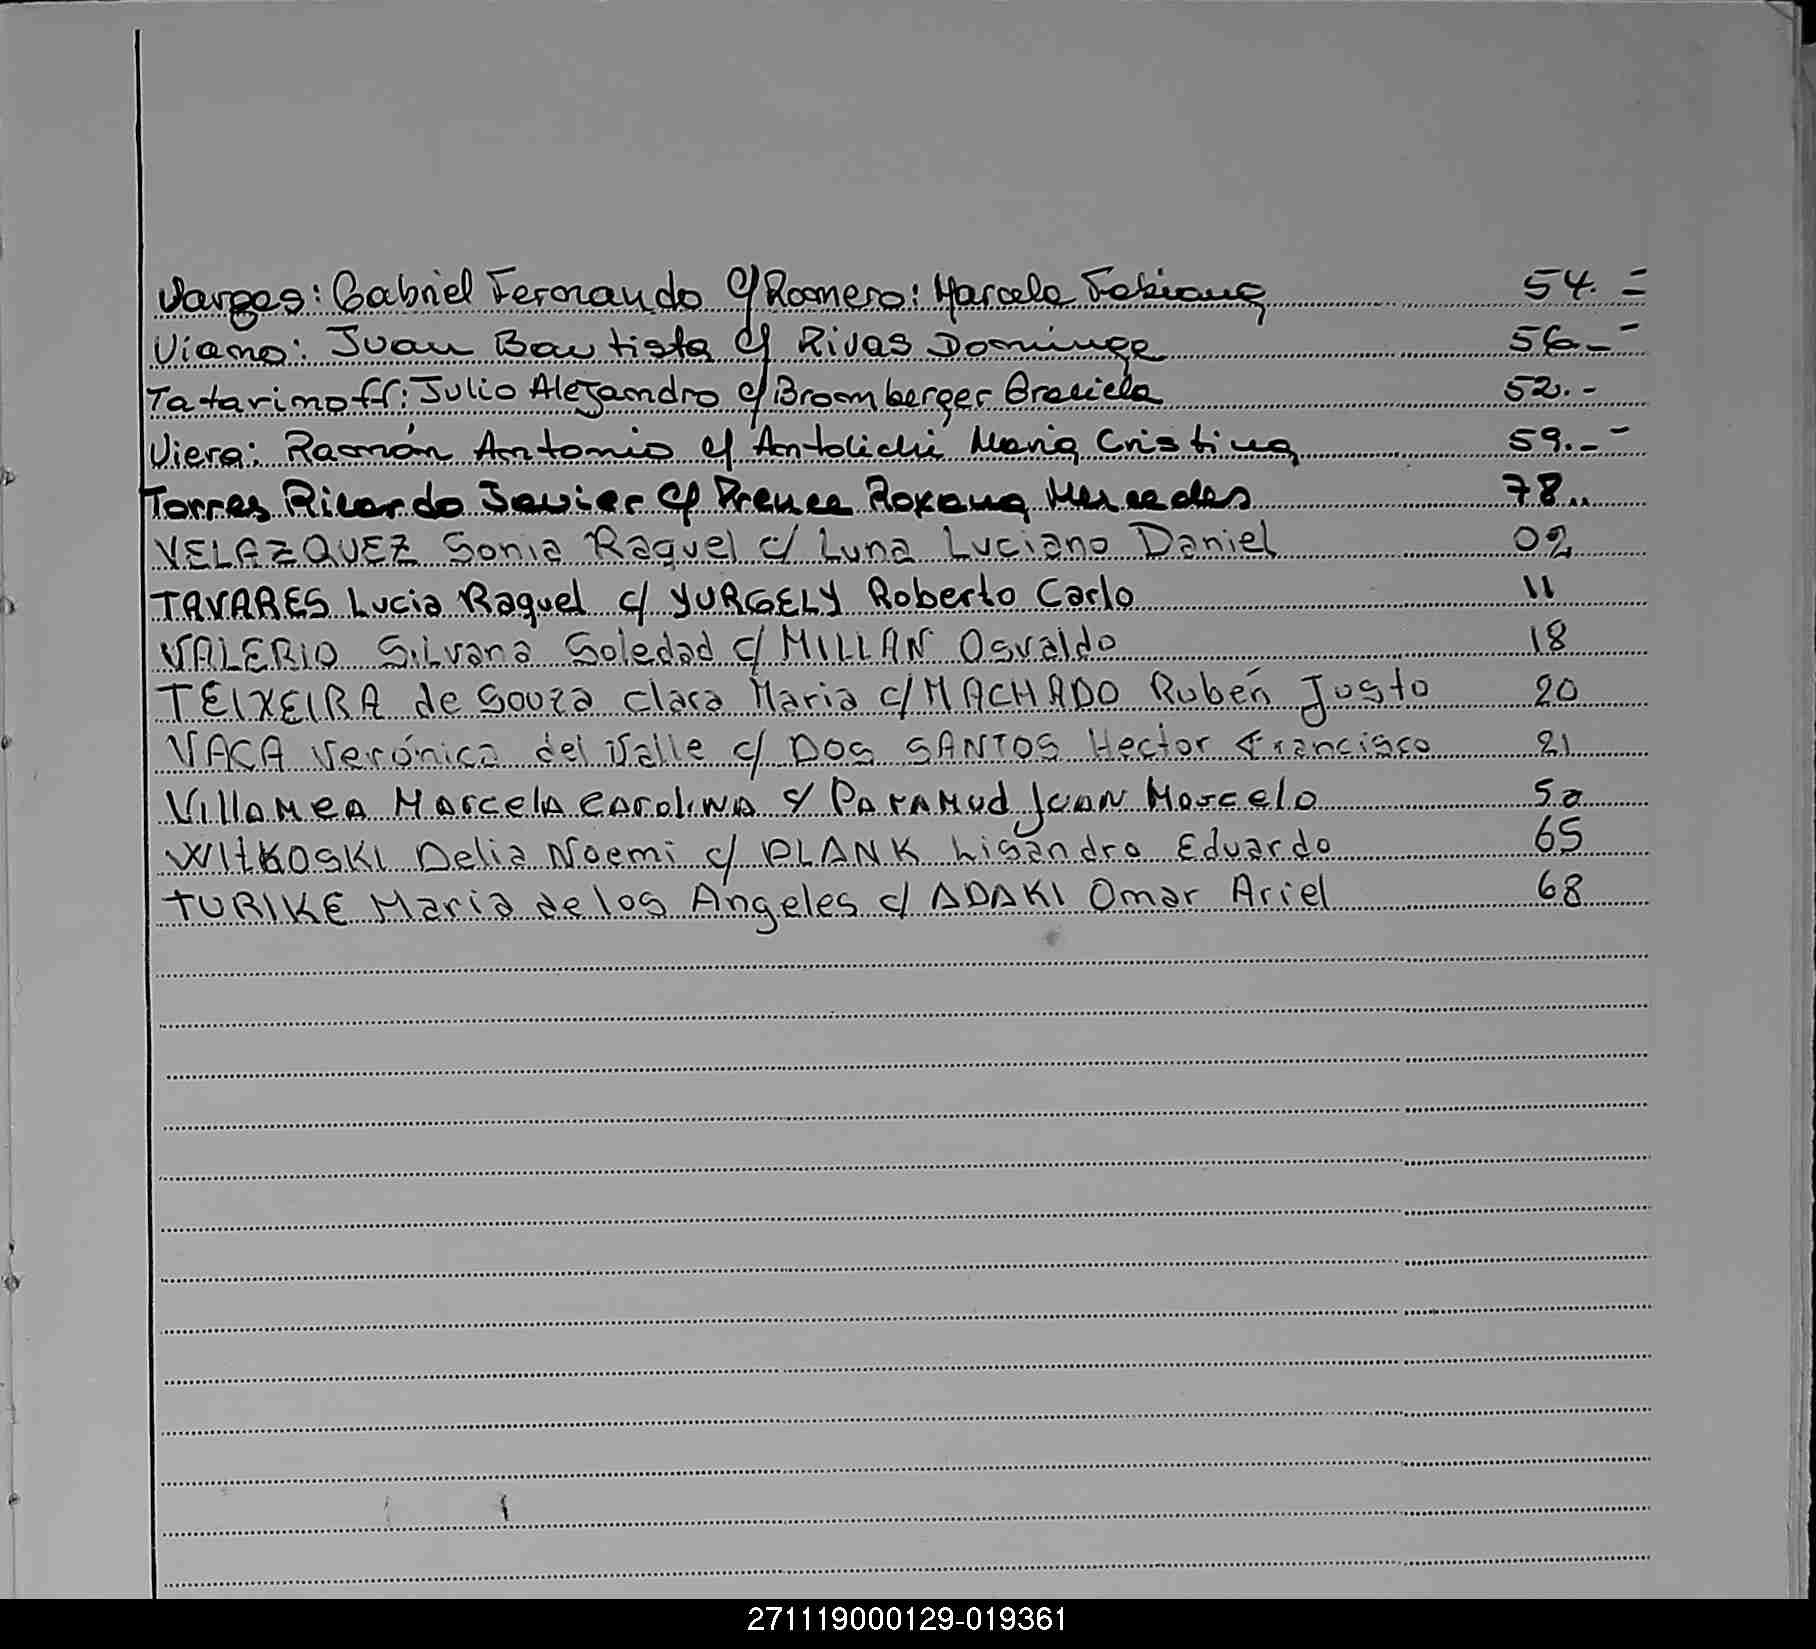 Vargas: Gabriel Fernando c/ Romero: Marcela Fabiana 54.=
Viano: Juan Bautista c/ Rivas Dominga 56.-
Tatarinoff: Julio Alejandro c/ Bromberger Graciela 52.-
Viera: Ramón Antonio c/ Antolichi Maria Cristina 59.-
Torres Ricardo Javier c/ Roxana Mercedes 78..
VELAZQUEZ Sonia Raquel c/ Luna Luciano Daniel 02
TAVARES Lucia Raquel c/ YURGELY Roberto Carlo 11
VALERIO Silvana Soledad c/ MILLAN Osvaldo 18
TEIXEIRA de Souza Clara Maria c/ MACHADO Rubén Justo 20
VACA Verónica del Valle c/ DOS SANTOS Hector Francisco 21
Marcela Carolina c/ Juan Marcelo
WITKOSKI Delia Noemi c/ PLANK Lisandro Eduardo 65
TURIKE Maria de los Angeles c/ ADAKI Omar Ariel 68
271119000129-019361